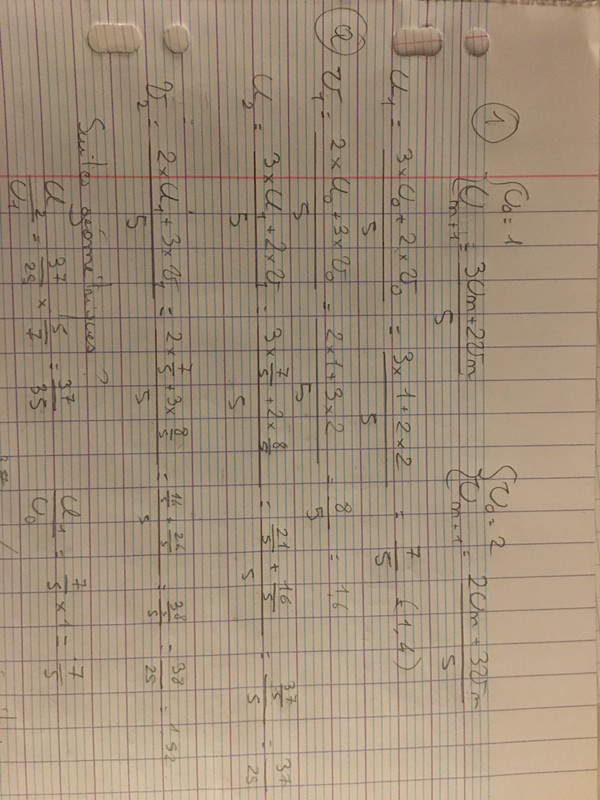 ① { U₀ = 1 { V₀ = 2
{ Uₙ₊₁ = (3Uₙ + 2Vₙ)/5 { Vₙ₊₁ = (2Uₙ + 3Vₙ)/5
U₁ = (3 × U₀ + 2 × V₀)/5 = (3 × 1 + 2 × 2)/5 = 7/5 (1,4)
② V₁ = (2 × U₀ + 3 × V₀)/5 = (2 × 1 + 3 × 2)/5 = 8/5 = 1,6
U₂ = (3 × U₁ + 2 × V₁)/5 = (3 × 7/5 + 2 × 8/5)/5 = (21/5 + 16/5)/5 = (37/5)/5 = 37/25
V₂ = (2 × U₁ + 3 × V₁)/5 = (2 × 7/5 + 3 × 8/5)/5 = (14/5 + 24/5)/5 = (38/5)/5 = 38/25 = 1.52
Suites géométriques ?
U₂/U₁ = 37/25 × 5/7 = 37/35 U₁/U₀ = 7/5 × 1 = 7/5